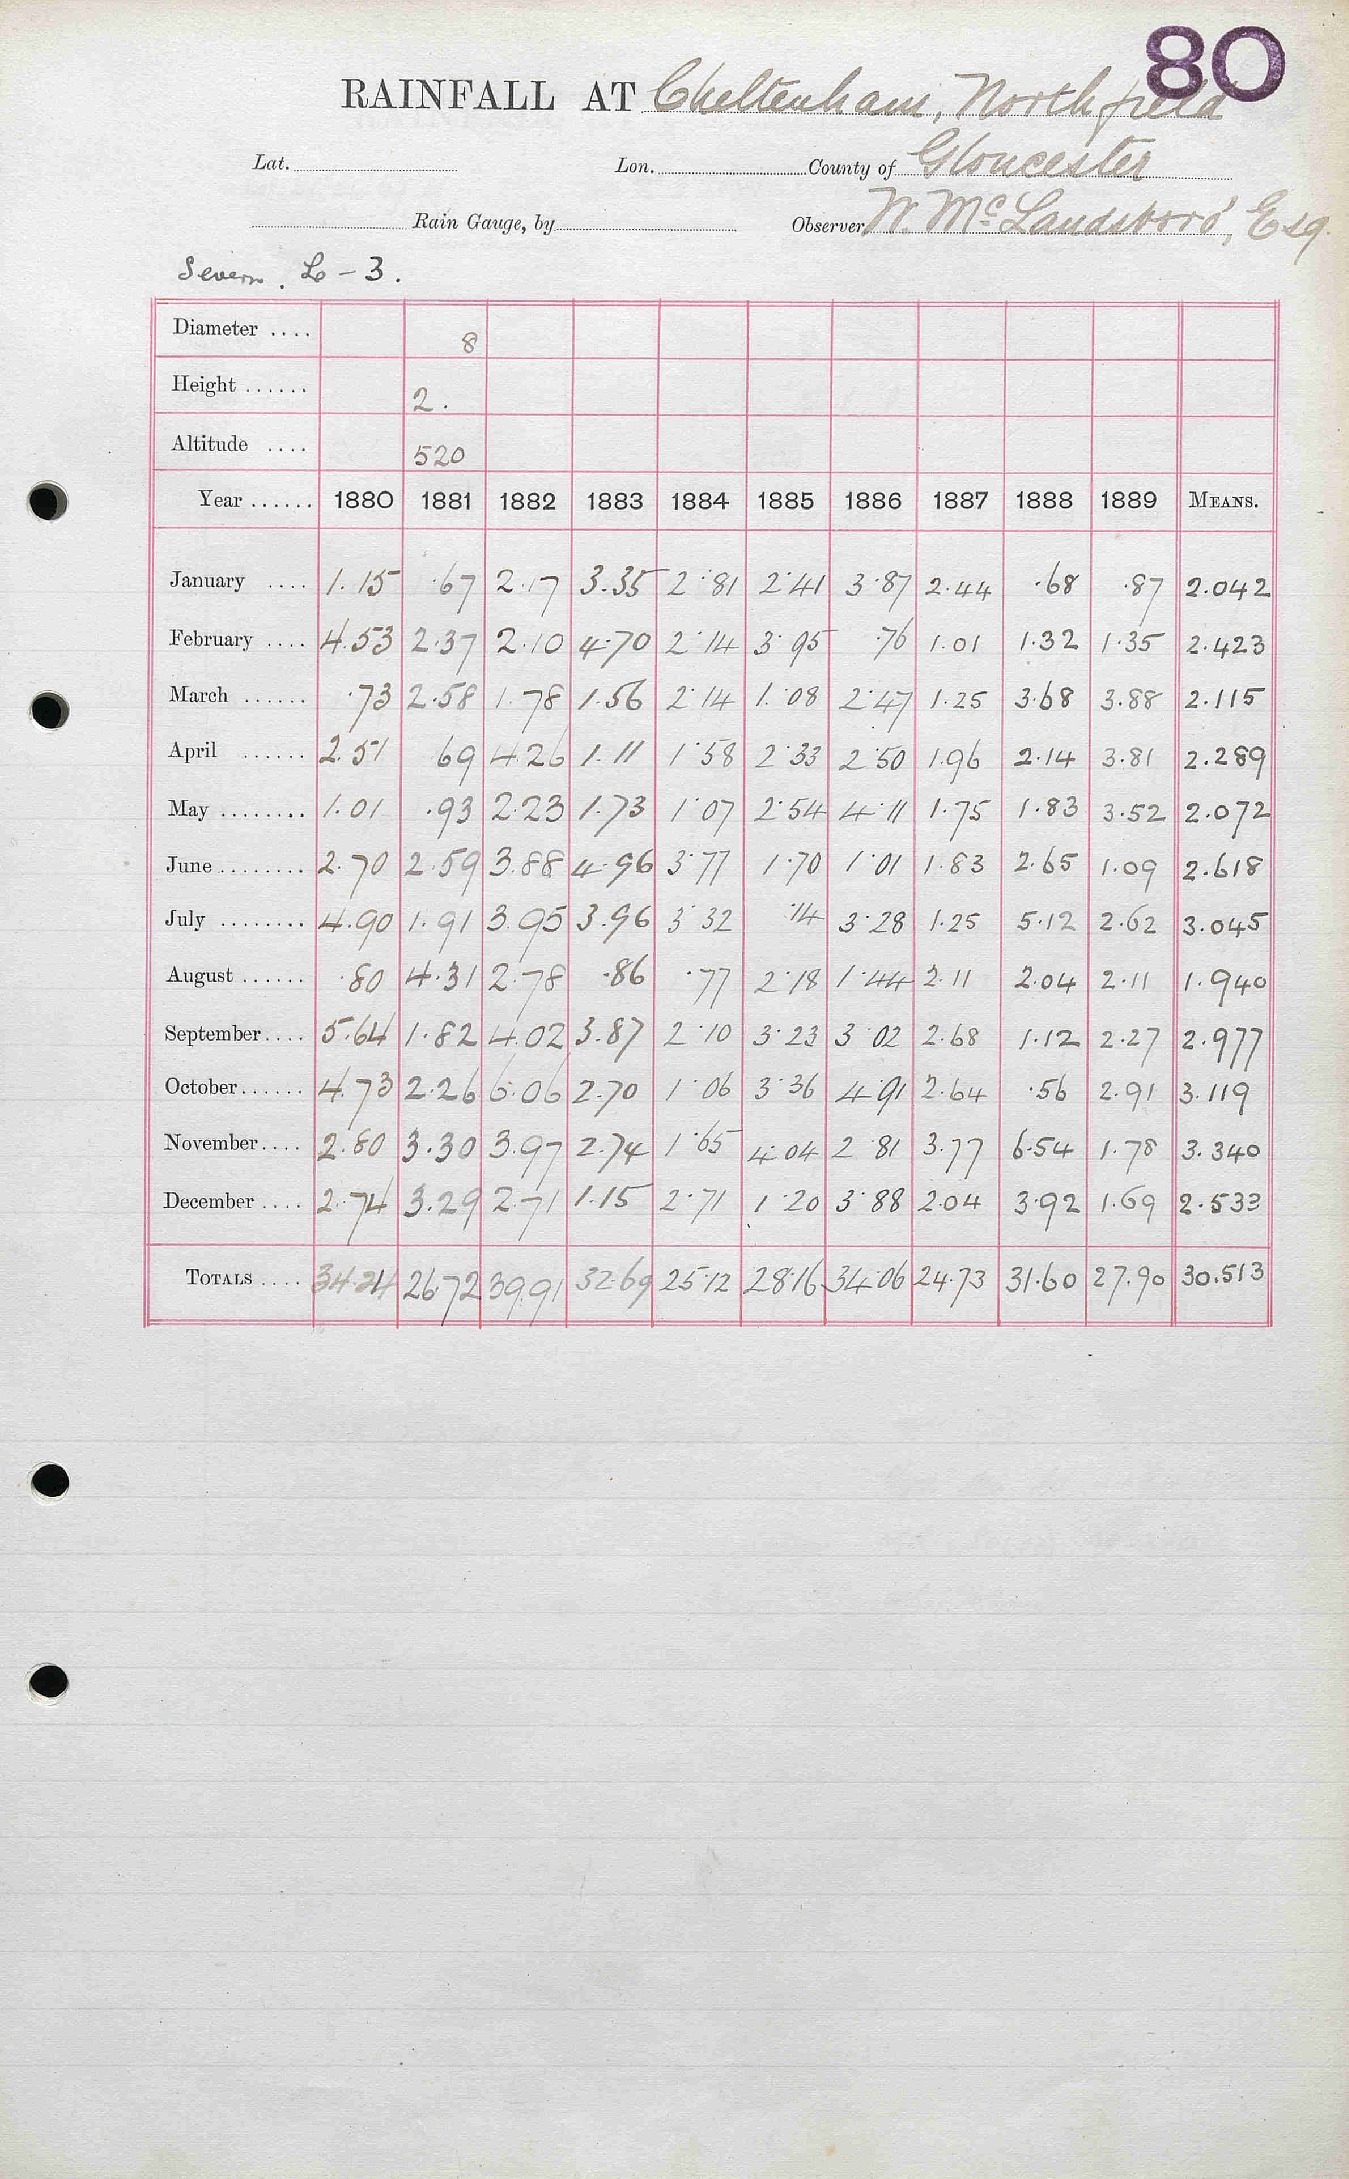 80
RAINFALL AT Cheltenham, Northfield
Lat. Lon. County of Gloucester
Rain Gauge, by Observer W. McLandsboro', Esq.
Severn. L - 3.
Diameter .... 8
Height ...... 2.
Altitude .... 520
Year ...... 1880 1881 1882 1883 1884 1885 1886 1887 1888 1889 MEANS.
January .... 1.15 .67 2.17 3.35 2.81 2.41 3.87 2.44 .68 .87 2.042
February .... 4.53 2.37 2.10 4.70 2.14 3.95 .76 1.01 1.32 1.35 2.423
March ...... .73 2.58 1.78 1.56 2.14 1.08 2.47 1.25 3.68 3.88 2.115
April ...... 2.51 69 4.26 1.11 1.58 2.33 2.50 1.96 2.14 3.81 2.289
May ........ 1.01 .93 2.23 1.73 1.07 2.54 4.11 1.75 1.83 3.52 2.072
June ........ 2.70 2.59 3.88 4.96 3.77 1.70 1.01 1.83 2.65 1.09 2.618
July ........ 4.90 1.91 3.95 3.96 3.32 .14 3.28 1.25 5.12 2.62 3.045
August ...... .80 4.31 2.78 .86 .77 2.18 1.44 2.11 2.04 2.11 1.940
September .... 5.64 1.82 4.02 3.87 2.10 3.23 3.02 2.68 1.12 2.27 2.977
October ...... 4.73 2.26 6.06 2.70 1.06 3.36 4.91 2.64 .56 2.91 3.119
November .... 2.80 3.30 3.97 2.74 1.65 4.04 2.81 3.77 6.54 1.78 3.340
December .... 2.74 3.29 2.71 1.15 2.71 1.20 3.88 2.04 3.92 1.69 2.533
TOTALS .... 34.24 26.72 39.91 32.69 25.12 28.16 34.06 24.73 31.60 27.90 30.513